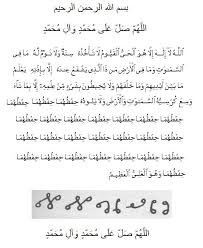 بسم الله الرحمن الرحيم
اَللّٰهُمَّ صَلِّ عَلَى مُحَمَّدٍ وَآلِ مُحَمَّدٍ
اَللهُ لَا إِلَهَ إِلَّا هُوَ الْحَيُّ الْقَيُّومُ لَا تَأْخُذُهُ سِنَةٌ وَلَا نَوْمٌ لَهُ مَا فِي
السَّمَوَاتِ وَمَا فِي الْأَرْضِ مَنْ ذَا الَّذِي يَشْفَعُ عِنْدَهُ إِلَّا بِإِذْنِهِ يَعْلَمُ
مَا بَيْنَ أَيْدِيهِمْ وَمَا خَلْفَهُمْ وَلَا يُحِيطُونَ بِشَيْءٍ مِنْ عِلْمِهِ إِلَّا بِمَا شَاءَ
وَسِعَ كُرْسِيُّهُ السَّمَوَاتِ وَالْأَرْضَ وَلَا يَئُودُهُ حِفْظُهُمَا حِفْظُهُمَا حِفْظُهُمَا
حِفْظُهُمَا حِفْظُهُمَا حِفْظُهُمَا حِفْظُهُمَا حِفْظُهُمَا حِفْظُهُمَا حِفْظُهُمَا
حِفْظُهُمَا حِفْظُهُمَا حِفْظُهُمَا حِفْظُهُمَا حِفْظُهُمَا حِفْظُهُمَا حِفْظُهُمَا
حِفْظُهُمَا وَهُوَ الْعَلِيُّ الْعَظِيمُ
اَللّٰهُمَّ صَلِّ عَلَى مُحَمَّدٍ وَآلِ مُحَمَّدٍ